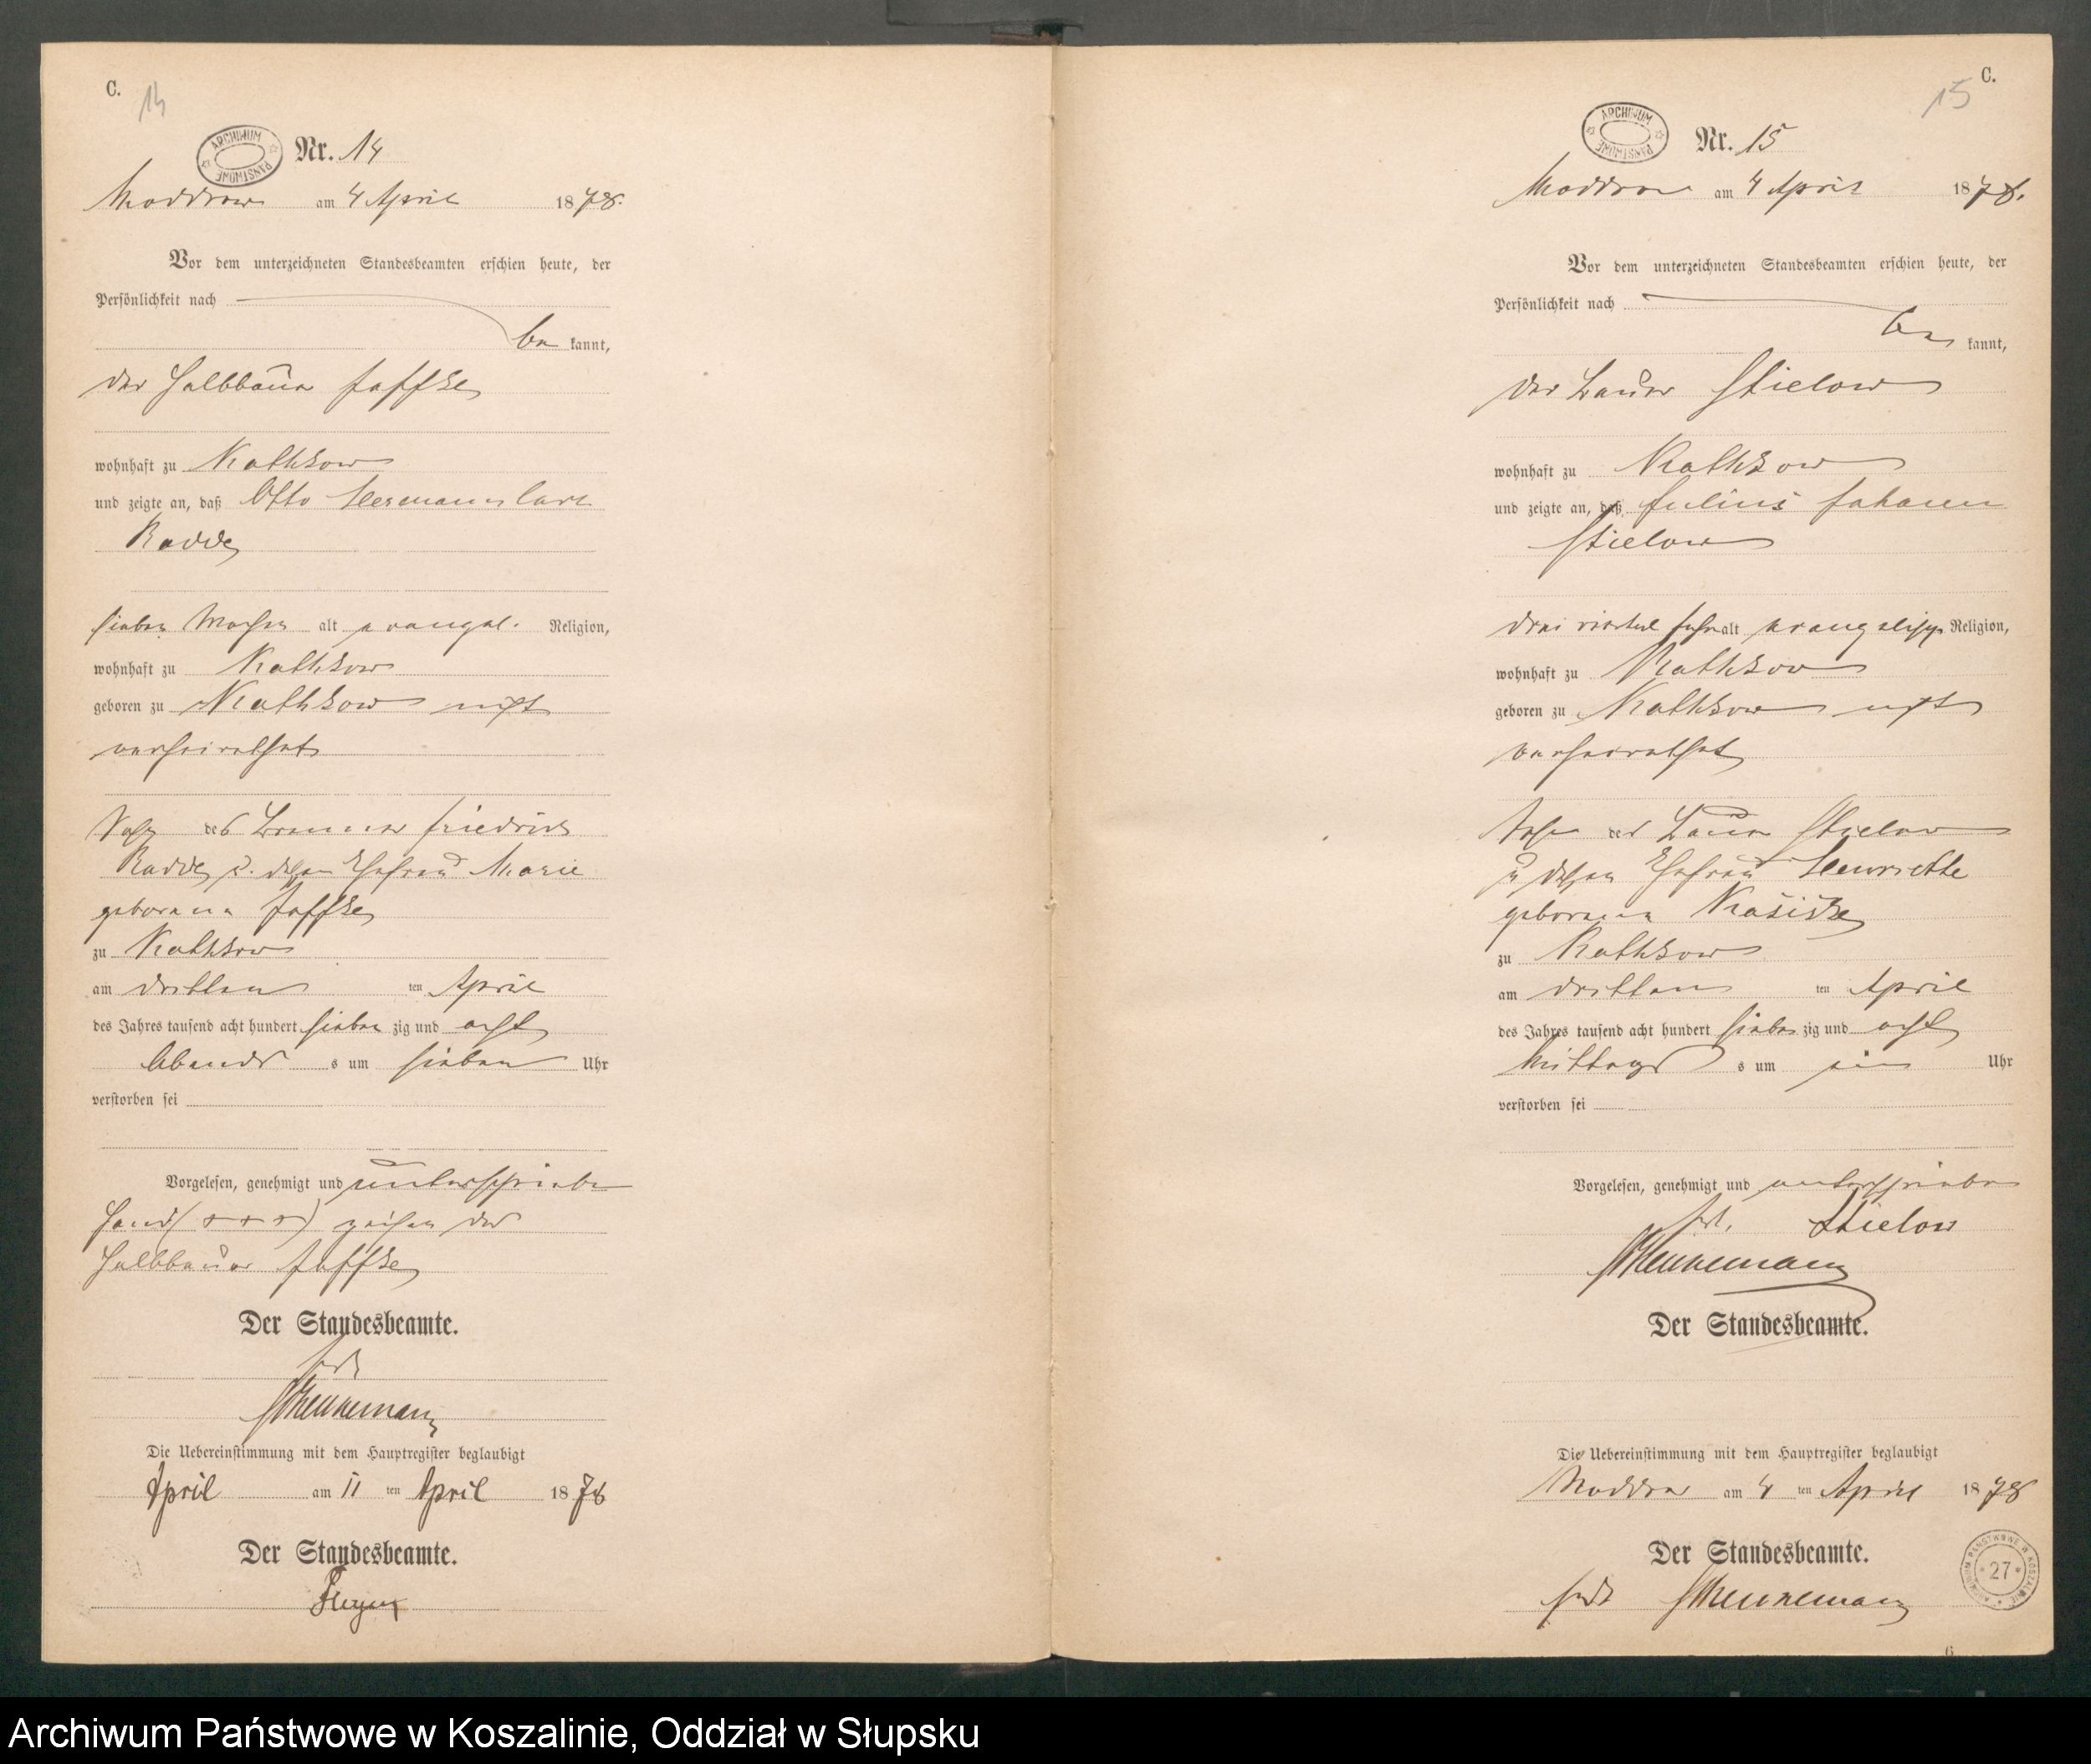 C.
14
ARCHIWUM PAŃSTWOWE
Nr. 14
Moddrow am 4 April 1878.
Vor dem unterzeichneten Standesbeamten erschien heute, der
Persönlichkeit nach
be kannt,
der Halbbauer Jaffke
wohnhaft zu Kathkow
und zeigte an, daß Otto Hermann Carl
Radde
sieben Wochen alt evangel. Religion,
wohnhaft zu Kathkow
geboren zu Kathkow nicht
verheirathet
Sohn des Friedrich
Radde u. dessen Ehefrau Marie
geborene Jaffke
zu Kathkow
am dritten ten April
des Jahres tausend acht hundert sieben zig und acht
Abends s um sieben Uhr
verstorben sei
Vorgelesen, genehmigt und unterschrieben
Hand (+++) zeichen des
Halbbauer Jaffke
Der Standesbeamte.
Die Uebereinstimmung mit dem Hauptregister beglaubigt
April am 11 ten April 1878
Der Standesbeamte.
C.
15
ARCHIWUM PAŃSTWOWE
Nr. 15
Moddrow am 4 April 1878.
Vor dem unterzeichneten Standesbeamten erschien heute, der
Persönlichkeit nach
be kannt,
der Bauer Stielow
wohnhaft zu Kathkow
und zeigte an, daß Julius Johann
Stielow
drei viertel Jahr alt evangelischer Religion,
wohnhaft zu Kathkow
geboren zu Kathkow nicht
verheirathet
Sohn des Bauer Stielow
u dessen Ehefrau Henriette
geborene
zu Kathkow
am dritten ten April
des Jahres tausend acht hundert sieben zig und acht
Mittags s um ein Uhr
verstorben sei
Vorgelesen, genehmigt und unterschrieben
Stielow
Der Standesbeamte.
Die Uebereinstimmung mit dem Hauptregister beglaubigt
Moddrow am 4 ten April 1878
Der Standesbeamte.
ARCHIWUM PAŃSTWOWE W KOSZALINIE
27
6
Archiwum Państwowe w Koszalinie, Oddział w Słupsku